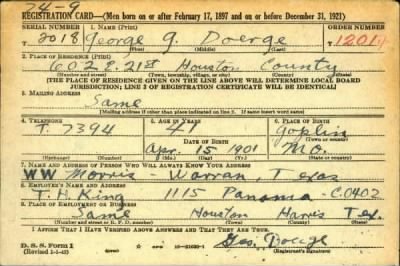 74-9
REGISTRATION CARD—(Men born on or after February 17, 1897 and on or before December 31, 1921)
SERIAL NUMBER 1. NAME (Print) ORDER NUMBER
T 3018 George G. Doerge 12014
(First) (Middle) (Last)
2. PLACE OF RESIDENCE (Print)
602 E. 21st Houston County
(Number and street) (Town, township, village, or city) (County) (State)
[THE PLACE OF RESIDENCE GIVEN ON THE LINE ABOVE WILL DETERMINE LOCAL BOARD
JURISDICTION; LINE 2 OF REGISTRATION CERTIFICATE WILL BE IDENTICAL]
3. MAILING ADDRESS
Same
[Mailing address if other than place indicated on line 2. If same insert word same]
4. TELEPHONE 5. AGE IN YEARS 6. PLACE OF BIRTH
T. 7394 41 Goplin
DATE OF BIRTH (Town or county)
Apr. 15 1901 Mo.
(Exchange) (Number) (Mo.) (Day) (Yr.) (State or country)
7. NAME AND ADDRESS OF PERSON WHO WILL ALWAYS KNOW YOUR ADDRESS
WW Morris - Warran, Texas
8. EMPLOYER'S NAME AND ADDRESS
T. H. King 1115 Panama. C0402
9. PLACE OF EMPLOYMENT OR BUSINESS
Same Houston Harris Tex.
(Number and street or R. F. D. number) (Town) (County) (State)
I AFFIRM THAT I HAVE VERIFIED ABOVE ANSWERS AND THAT THEY ARE TRUE.
D. S. S. Form 1
(Revised 1-1-42) (over)
Geo. Doerge
(Registrant's signature)